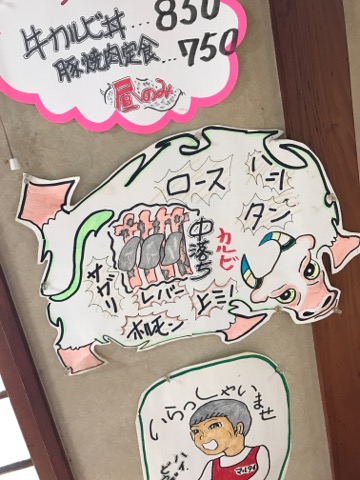 牛カルビ丼…850
豚焼肉定食…750
昼のみ
ロース
ハート
タン
カルビ
中落ち
サガリ
レバー
ホルモン
いらっしゃいませ